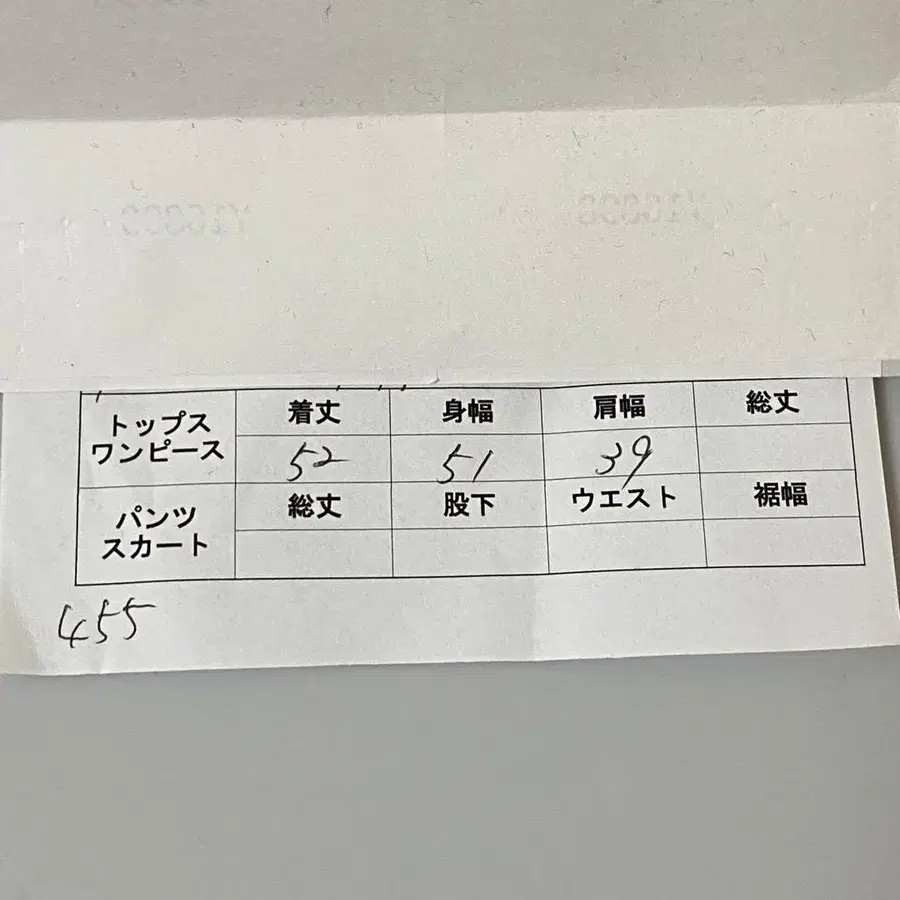 トップス
ワンピース
着丈 身幅 肩幅 総丈
52 51 39
パンツ
スカート
総丈 股下 ウエスト 裾幅
455